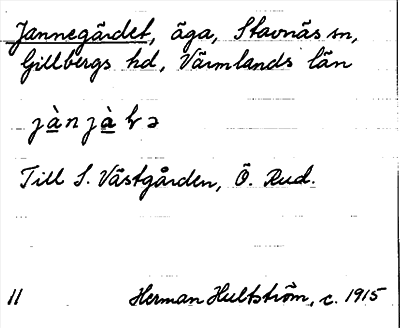 Jannegärdet, äga, Stavnäs sn,
Gillbergs hd, Värmlands län
jànjàlɂə
Till S. Västgården, Ö. Rud.
11 Herman Hultström, c. 1915